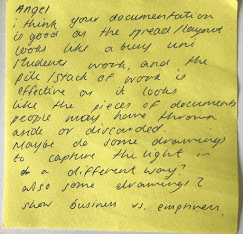 Angel
i think your documentation
is good as the spread/layout
looks like a busy uni
students work, and the
pile/stack of work is
effective as it looks
like the pieces of documents
people may have thrown
aside or discarded.
Maybe do some drawings
to capture the light in
a different way?
also some drawings?
show business vs. emptiness.